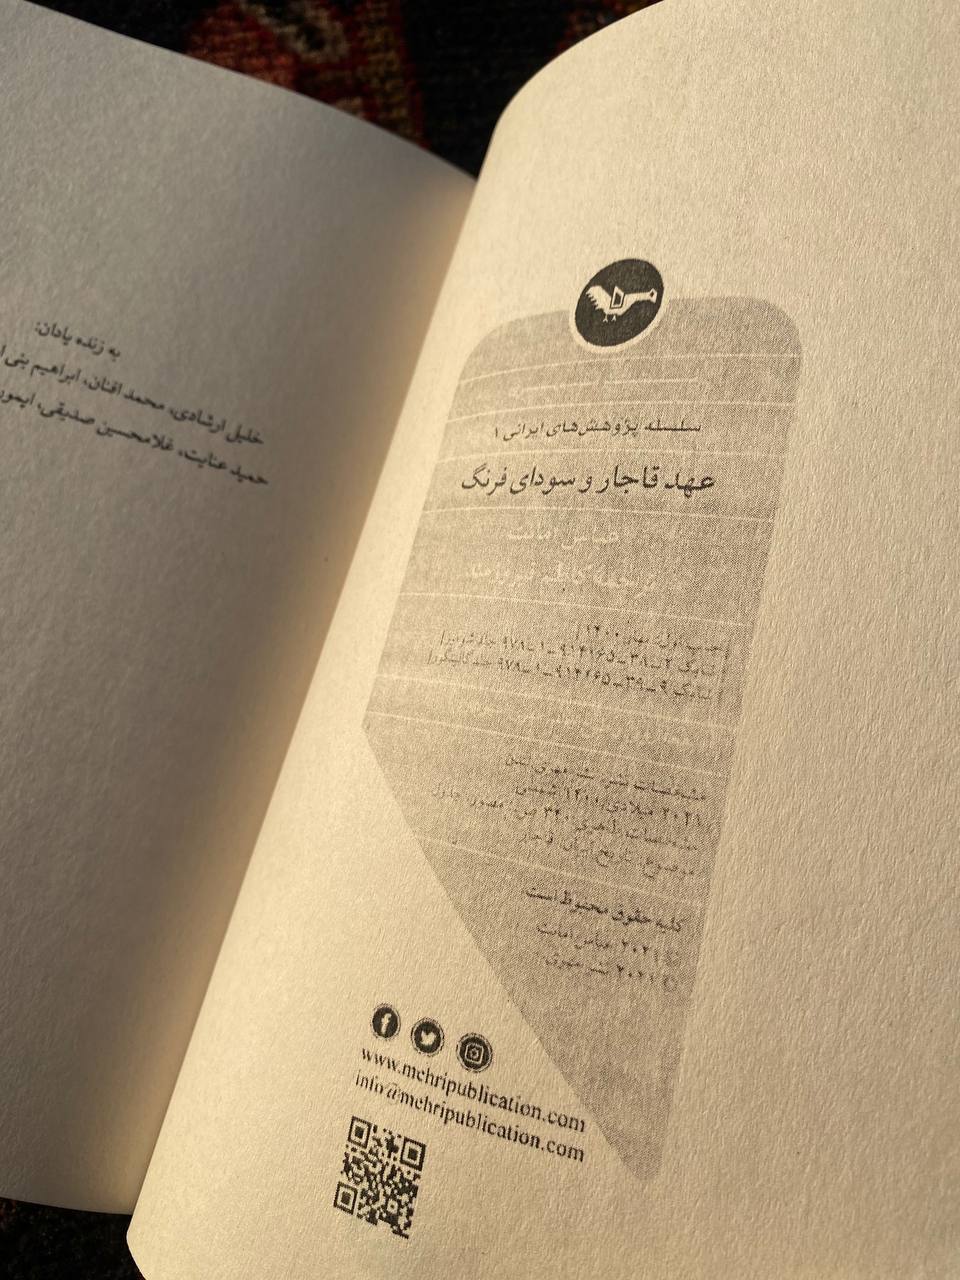 به زنده یادان:
خلیل ارشادی، محمد افنان، ابراهیم بنی
حمید عنایت، غلامحسین صدیقی،
سلسله پژوهش‌های ایرانی ۱
عهد قاجار و سودای فرنگ
عباس امانت
ترجمه کاظم فیروزمند
چاپ اول: بهار ۱۴۰۰ |
شابک ۲-۳۸-۹۱۴۱۶۵-۱-۹۷۸ جلد شومیز |
شابک ۹-۳۹-۹۱۴۱۶۵-۱-۹۷۸ جلد گالینگور |
مشخصات نشر: نشر مهری: لندن
۲۰۲۱ میلادی/۱۴۰۰ شمسی
مشخصات ظاهری: ۳۴۰ ص: مصور، جدول
موضوع: تاریخ ایران، قاجار
کلیه حقوق محفوظ است.
© ۲۰۲۱ عباس امانت
© ۲۰۲۱ نشر مهری
www.mehripublication.com
info@mehripublication.com